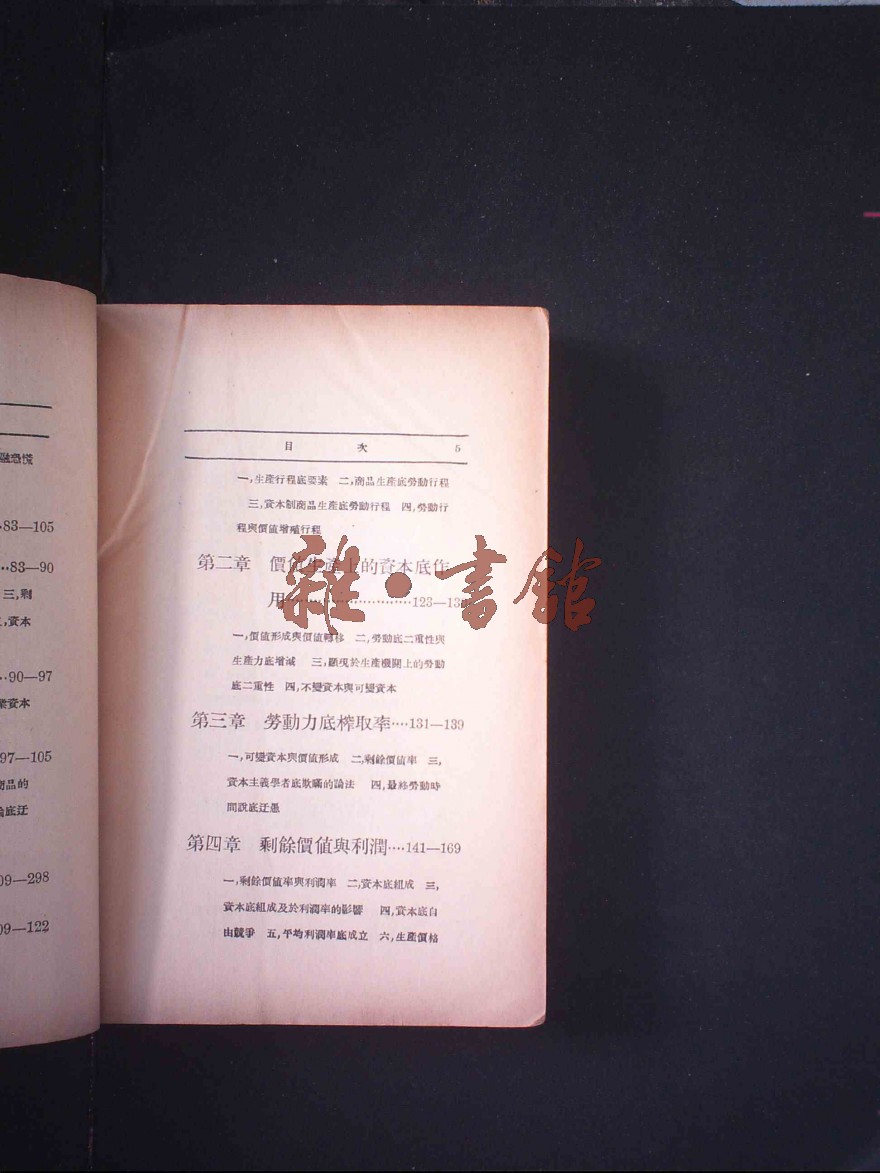 融恐慌
83—105
83—90
三,剩
資本
90—97
業資本
97—105
商品的
論底迂
09—298
09—122
目 次 5
一,生產行程底要素 二,商品生產底勞動行程
三,資本制商品生產底勞動行程 四,勞動行
程與價值增殖行程
第二章 價值生產上的資本底作
用……………………123—13
一,價值形成與價值轉移 二,勞動底二重性與
生產力底增減 三,顯現於生產機關上的勞動
底二重性 四,不變資本與可變資本
第三章 勞動力底榨取率····131—139
一,可變資本與價值形成 二,剩餘價值率 三,
資本主義學者底欺瞞的論法 四,最終勞動時
間說底迂愚
第四章 剩餘價值與利潤····141—169
一,剩餘價值率與利潤率 二,資本底組成 三,
資本底組成及於利潤率的影響 四,資本底自
由競爭 五,平均利潤率底成立 六,生產價格
雜·書館